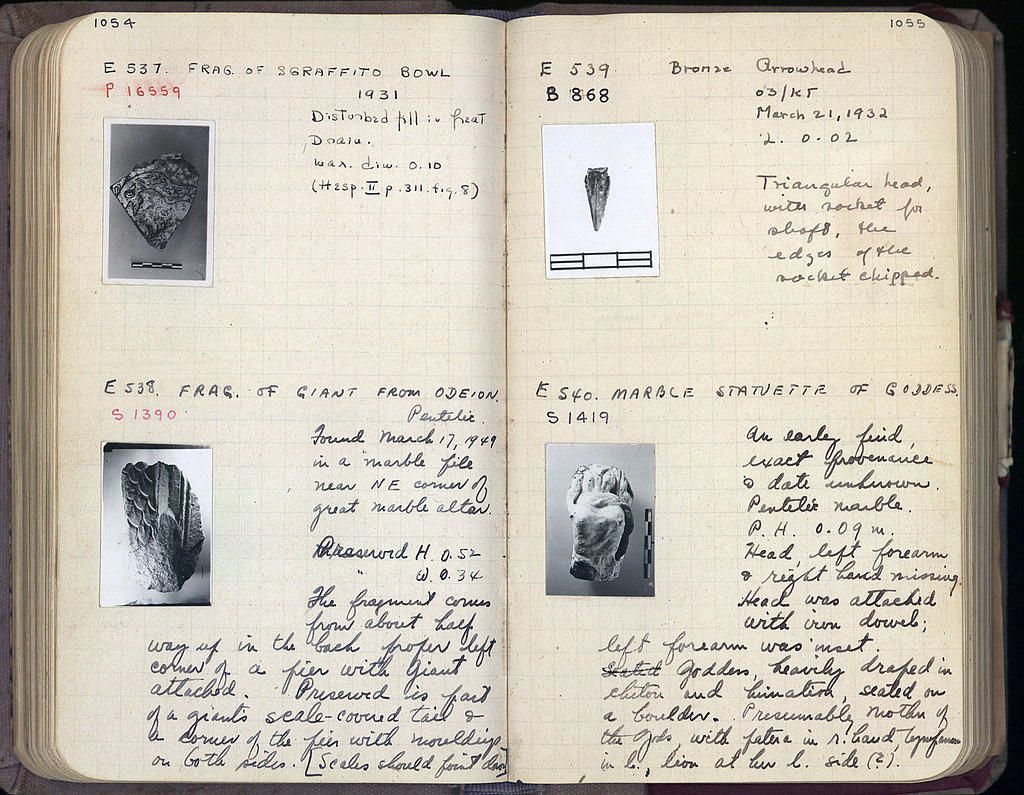 1054
E 537. FRAG. OF SGRAFFITO BOWL
P 16559
1931
Disturbed fill in Great
Drain.
max. dim. 0.10
(Hesp. II p. 311. fig. 8)
E 538. FRAG. OF GIANT FROM ODEION.
S 1390
Pentelic.
Found March 17, 1949
in a marble pile
near NE corner of
great marble altar.
Preserved H. 0.52
" W. 0.34
The fragment comes
from about half
way up in the back proper left
corner of a pier with Giant
attached. Preserved is part
of a giant's scale-covered tail &
a corner of the pier with mouldings
on both sides. [Scales should point down]
1055
E 539 Bronze Arrowhead
B 868
03/KΓ
March 21, 1932
L. 0.02
Triangular head,
with socket for
shaft, the
edges of the
socket chipped.
E 540. MARBLE STATUETTE OF GODDESS.
S 1419
An early find,
exact provenance
& date unknown.
Pentelic marble.
P. H. 0.09 m.
Head, left forearm
& right hand missing.
Head was attached
with iron dowel;
left forearm was inset.
Seated Goddess, heavily draped in
chiton and himation, seated on
a boulder. Presumably Mother of
the Gods, with patera in r. hand, tympanum
in l., lion at her l. side (?).